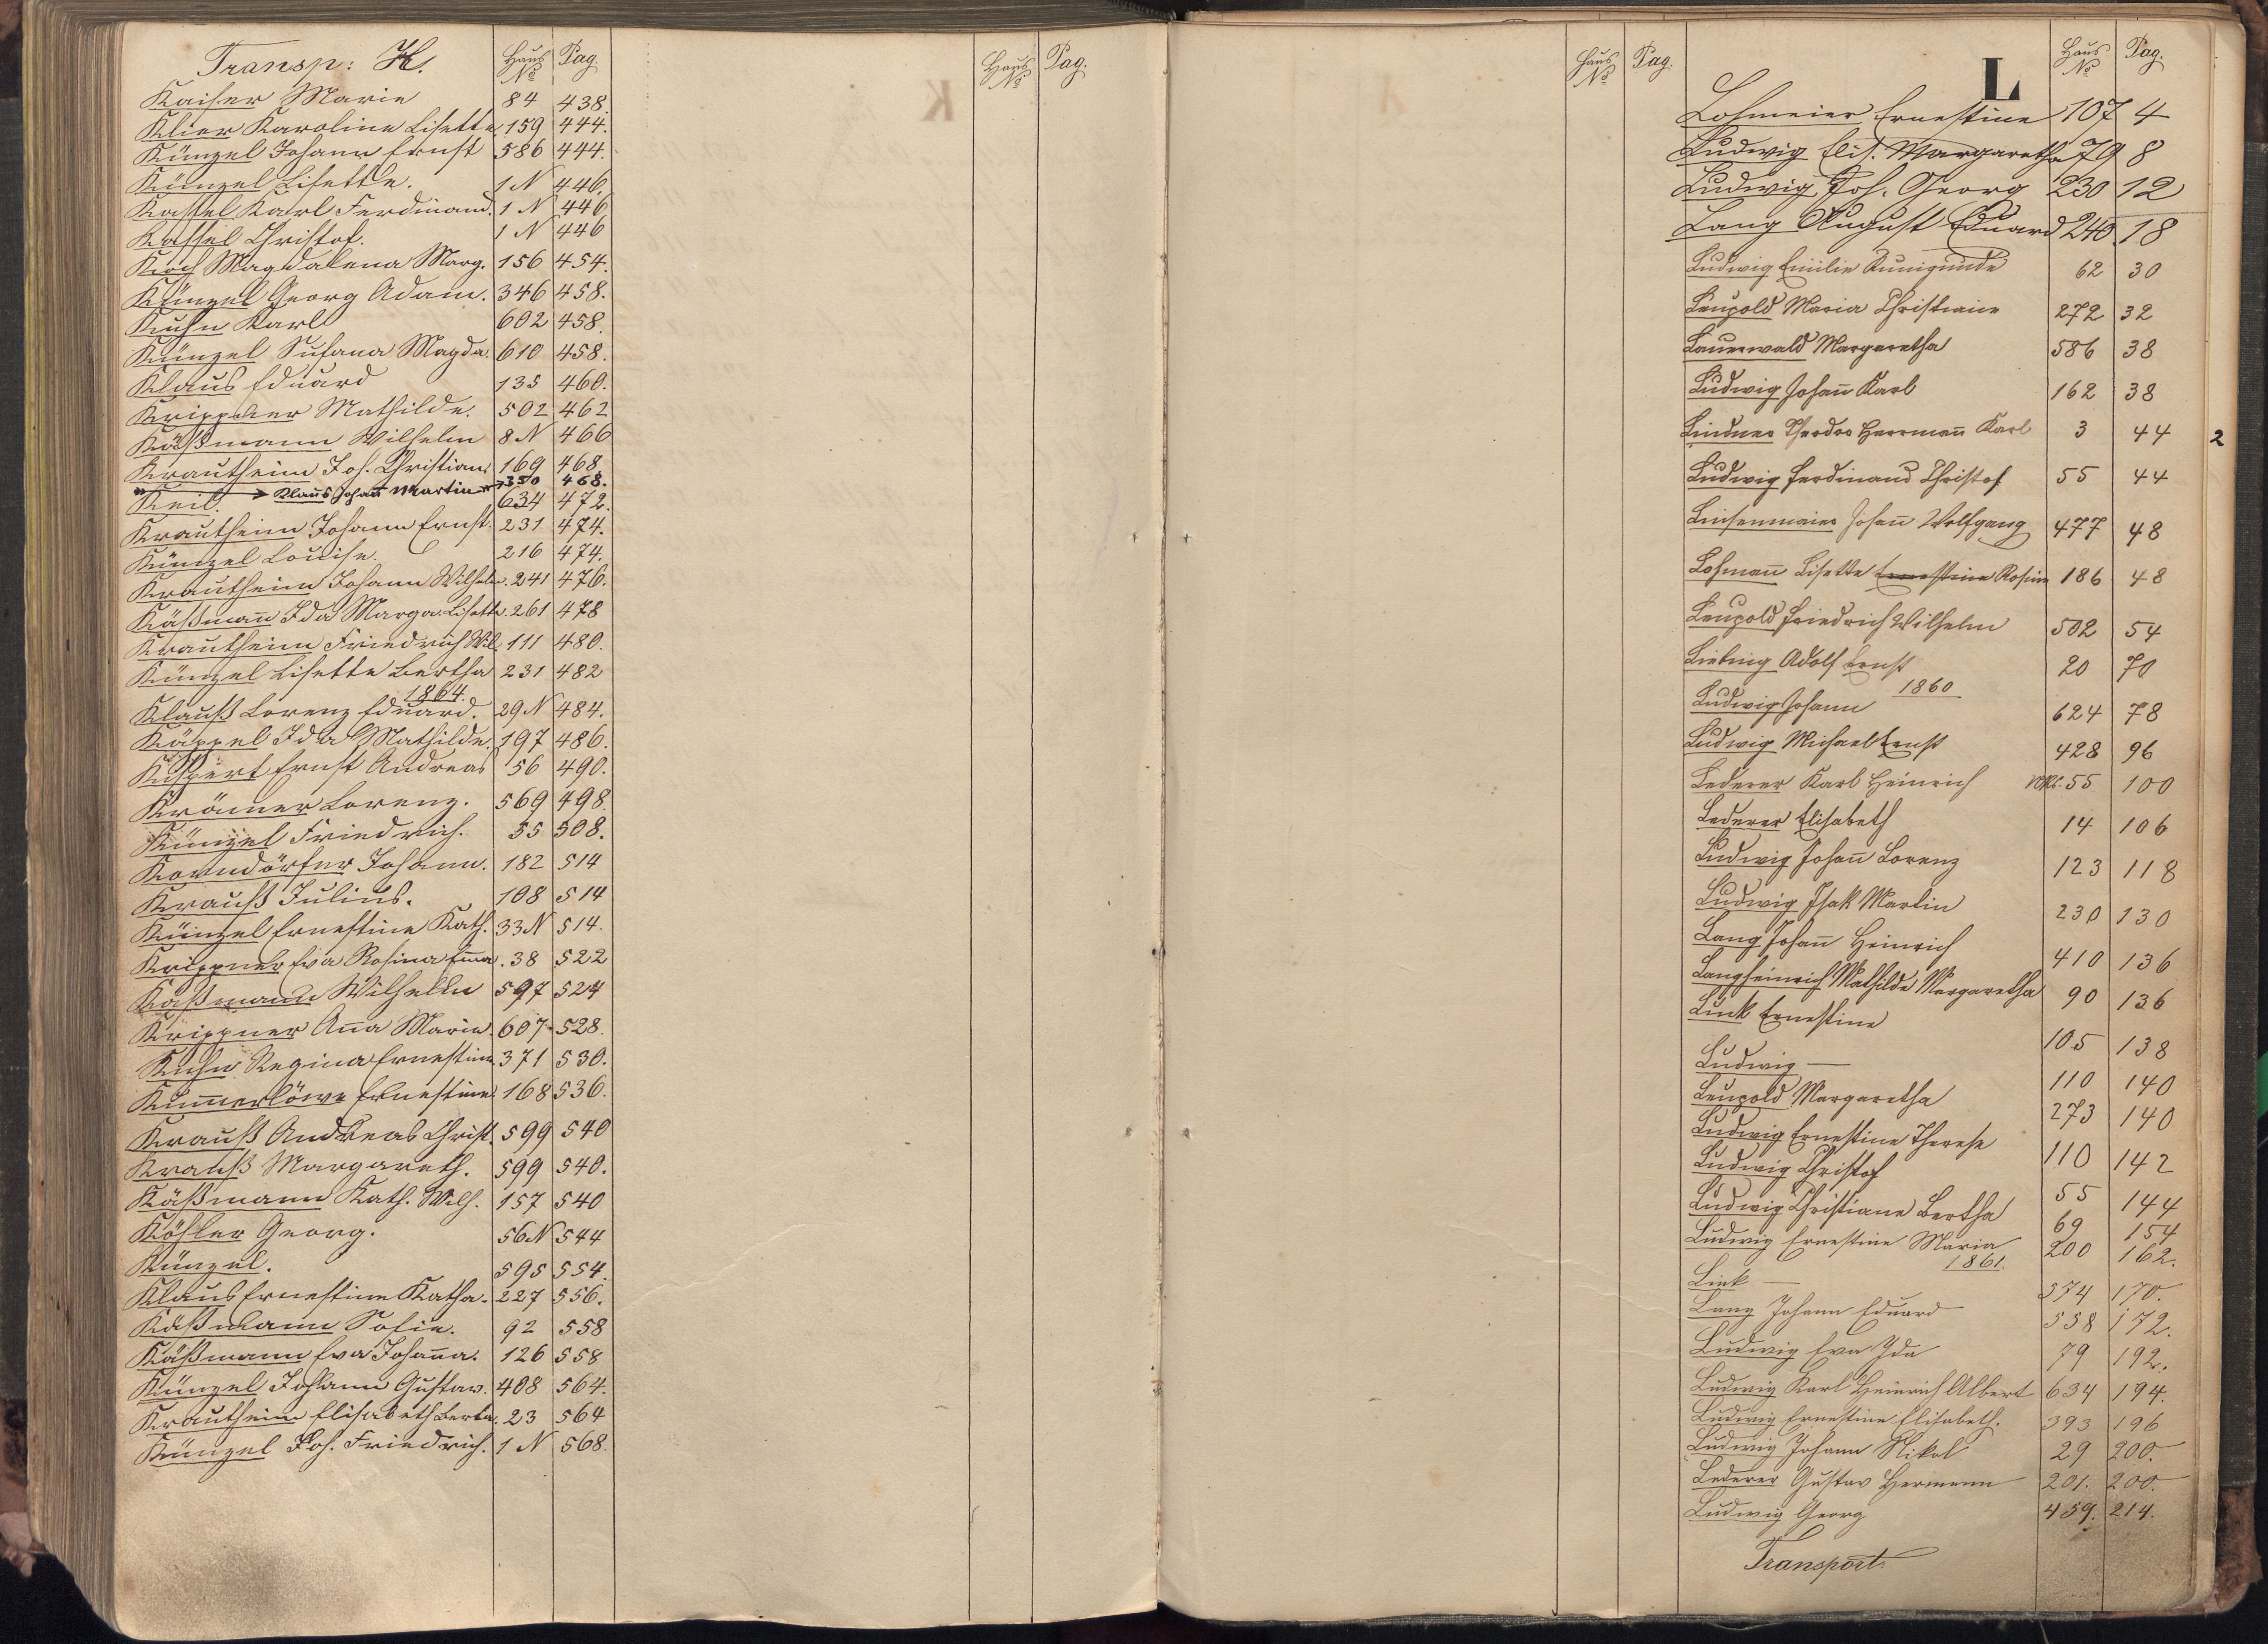 Transp: K. Haus No Pag.
Kaiser Marie 84 438.
Klier Karoline Lisette. 159 444.
Künzel Johann Ernst 586 444.
Künzel Lisette. 1 N 446.
Kassel Karl Ferdinand. 1 N 446
Kassel Christof. 1 N 446
Koch Magdalena Marg. 156 454.
Künzel Georg Adam. 346 458.
Kuhn Karl 602 458.
Künzel Susana Magda. 610 458.
Klaus Eduard 135 460.
Krippner Mathilde. 502 462
Käßmann Wilhelm 8 N 466
Krautheim Joh. Christian. 169 468.
" Klaus Johañ Martin " 350 468.
Keil. 634 472.
Krautheim Johann Ernst. 231 474.
Künzel Louise. 216 474.
Krautheim Johann Wilhelm. 241 476.
Käßmañ Ida Marga. Lisette. 261 478
Krautheim Friedrich Wil. 111 480.
Künzel Lisette Bertha 231 482
1864.
Klauß Lorenz Eduard. 29 N 484.
Käppel Ida Mathilde. 197 486.
Küspert Ernst Andreas 56 490.
Krömer Lorenz. 569 498.
Künzel Friedrich. 55 508.
Korndörfer Johann. 182 514
Krauß Julius. 108 514
Künzel Ernestine Kath. 33 N 514.
Krippner Eva Rosina Em̄a. 38 522
Käßmann Wilhelm 597 524
Krippner Aña Maria. 607 528.
Kuhn Regina Ernestine 371 530.
Kum̄erlöwe Ernestine 168 536.
Krauß Andreas Christ. 599 540
Krauß Margareth. 599 540.
Käßmann Kath. Wilh. 157 540
Köhler Georg. 56 N 544
Künzel. 595 554.
Klaus Ernestine Katha. 227 556.
Käßmann Sofie. 92 558
Käßmann Eva Johaña. 126 558
Künzel Johann Gustav. 408 564.
Krautheim Elisabeth Berta. 23 564
Künzel Joh. Friedrich. 1 N 568.
K Haus No Pag.
Haus No Pag.
L Haus No Pag.
Lohmeier Ernestine 107 4
Ludwig Elis. Margaretha 79 8
Ludwig Joh. Georg 230 12
Lang August Eduard 240. 18
Ludwig Emilie Kunigunde 62 30
Leupold Maria Christiane 272 32
Lauerwald Margaretha 586 38
Ludwig Johañ Karl 162 38
Lindner Theodor Herrmañ Karl 3 44
2
Ludwig Ferdinand Christof 55 44
Linsenmaier Johañ Wolfgang 477 48
Lohmañ Lisette Ernestine Rosine 186 48
Leupold Friedrich Wilhelm 502 54
Liebing Adolf Ernst 20 70
1860
Ludwig Johann 624 78
Ludwig Michael Ernst 428 96
Lederer Karl Heinrich 55 100
Lederer Elisabeth 14 106
Ludwig Johañ Lorenz 123 118
Ludwig Isak Martin 230 130
Lang Johañ Heinrich 410 136
Langheinrich Mathilde Margaretha 90 136
Link Ernestine 105 138
Ludwig — 110 140
Leupold Margaretha 273 140
Ludwig Ernestine Therese 110 142
Ludwig Christof 55 144
Ludwig Christiane Bertha 69 154
Ludwig Ernestine Maria 200 162.
1861.
Link — 374 170.
Lang Johann Eduard 558 172.
Ludwig Eva Ida 79 192.
Ludwig Karl Heinrich Albert 634 194.
Ludwig Ernestine Elisabeth. 393 196
Ludwig Johann Nikol 29 200.
Lederer Gustav Hermann 201. 200.
Ludwig Georg 459. 214.
Transport.